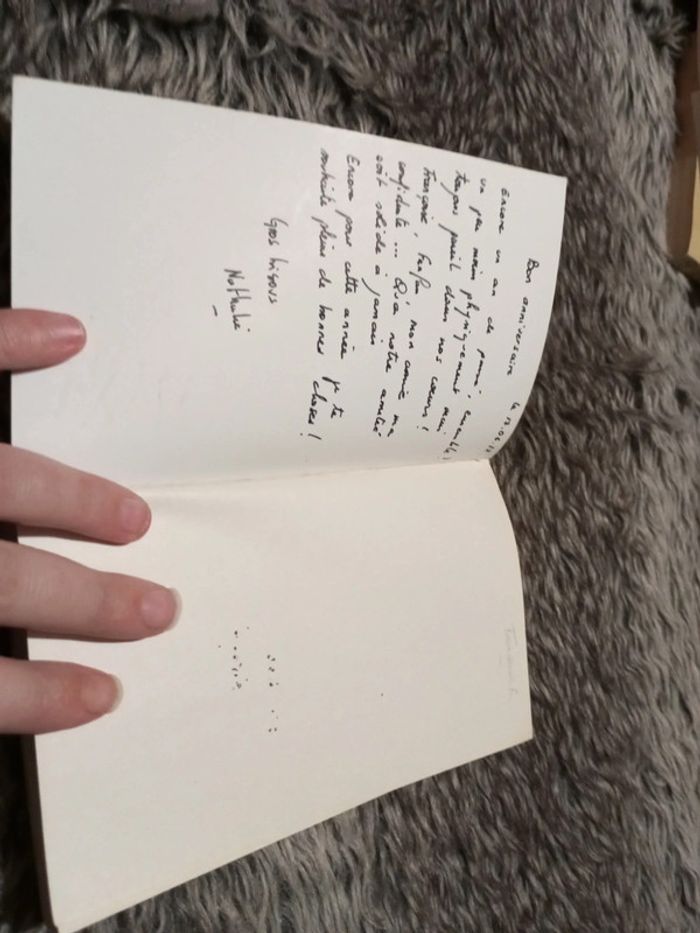 Bon anniversaire
Encore un an de passé, ensemble !
un peu moins physiquement mais
toujours pareil dans nos cœurs !
Françoise, mon amie, ma
confidente ... Que notre amitié
soit solide à jamais
Encore pour cette année je te
souhaite plein de bonnes choses !
Gros bisous
Nathalie